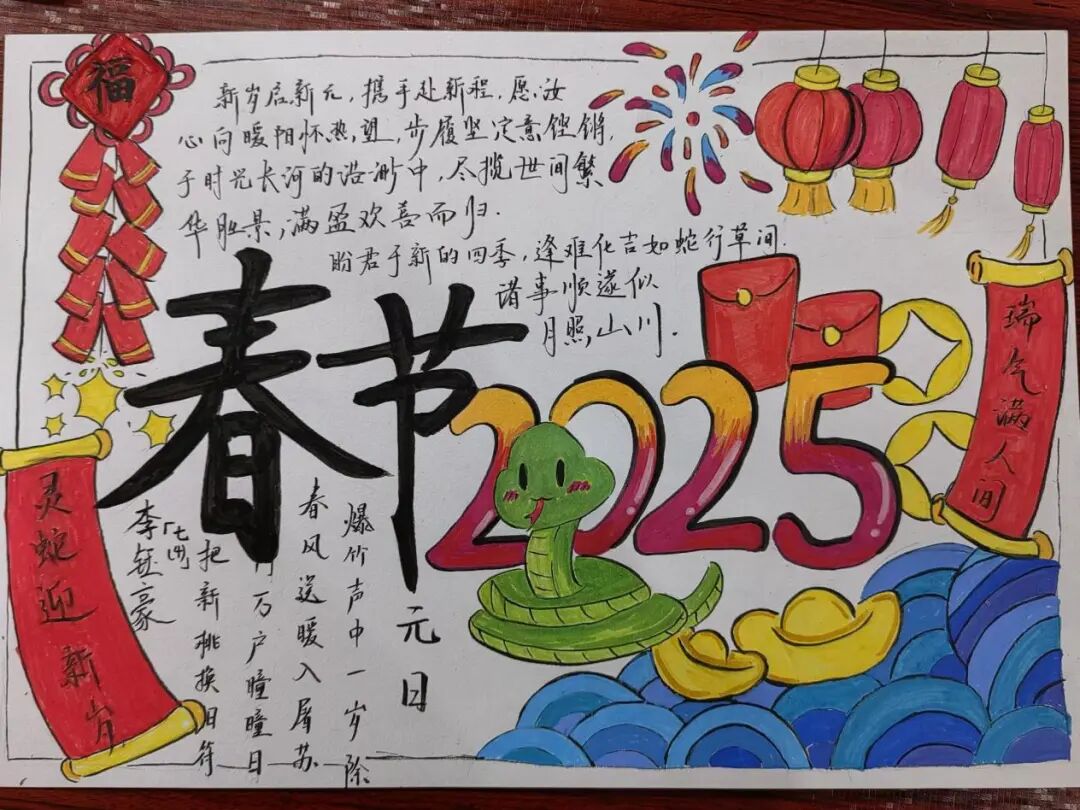 福
新岁启新元，携手赴新程，愿汝
心向暖阳怀热望，步履坚定意铿锵，
于时光长河的浩渺中，尽揽世间繁
华胜景，满盈欢喜而归.
盼君于新的四季，逢难化吉如蛇行草间.
诸事顺遂似
月照山川.
春节2025
瑞气满人间
灵蛇迎新岁
元日
爆竹声中一岁除
春风送暖入屠苏
万户瞳瞳日
把新桃换旧符
李钰豪